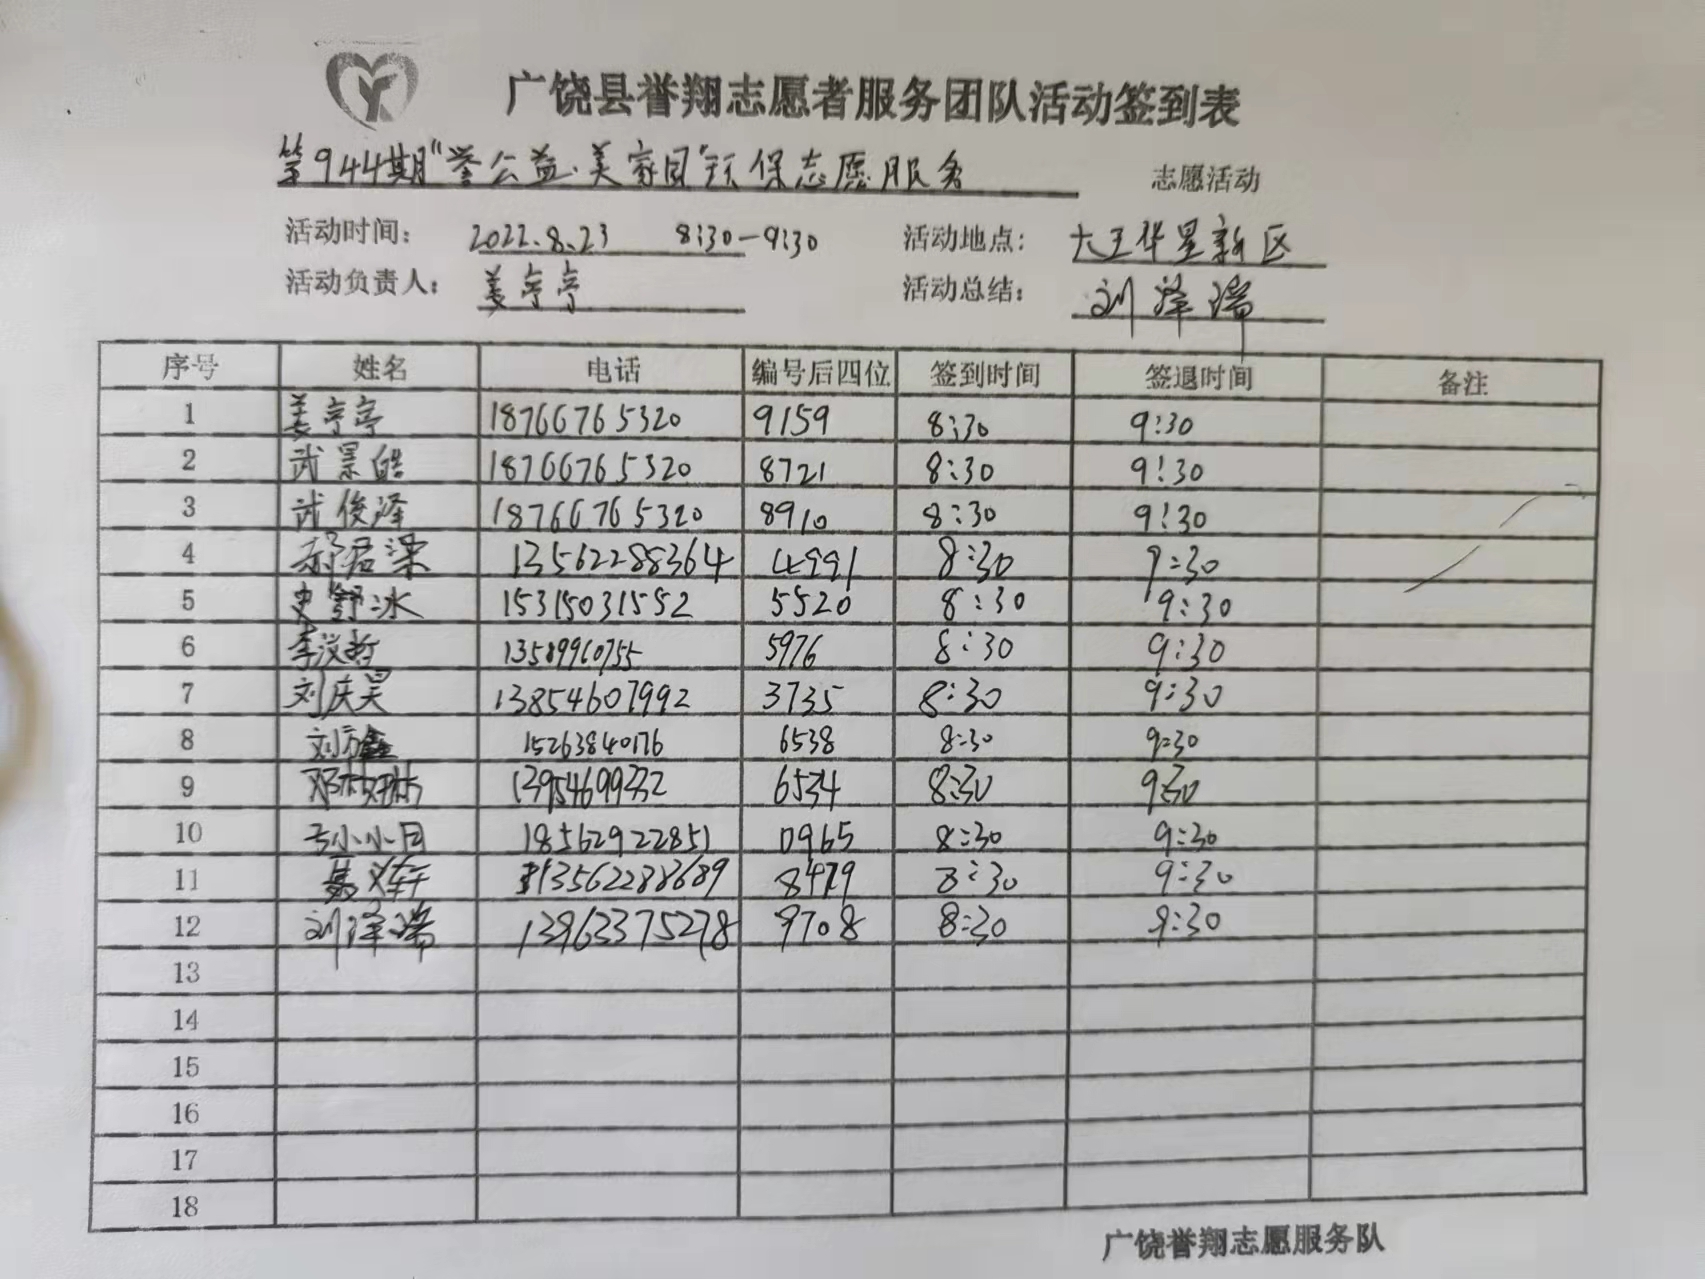 广饶县誉翔志愿者服务团队活动签到表
第944期"誉公益·美家园"环保志愿服务 志愿活动
活动时间: 2022.8.23 8:30-9:30 活动地点: 大王华星新区
活动负责人: 姜亭亭 活动总结: 刘泽瑞
序号 姓名 电话 编号后四位 签到时间 签退时间 备注
1 姜亭亭 18766765320 9159 8:30 9:30
2 武景皓 18766765320 8721 8:30 9:30
3 武俊泽 18766765320 8910 8:30 9:30
4 13562288364 4991 8:30 9:30
5 史舒冰 15315031552 5520 8:30 9:30
6 李汶哲 13589960755 5976 8:30 9:30
7 刘庆昊 13854607992 3735 8:30 9:30
8 刘方鑫 15263840176 6538 8:30 9:30
9 13954699332 6534 8:30 9:30
10 18562922851 0965 8:30 9:30
11 聂义轩 13562288689 8479 8:30 9:30
12 刘泽瑞 13963375278 9708 8:30 9:30
13
14
15
16
17
18
广饶誉翔志愿服务队